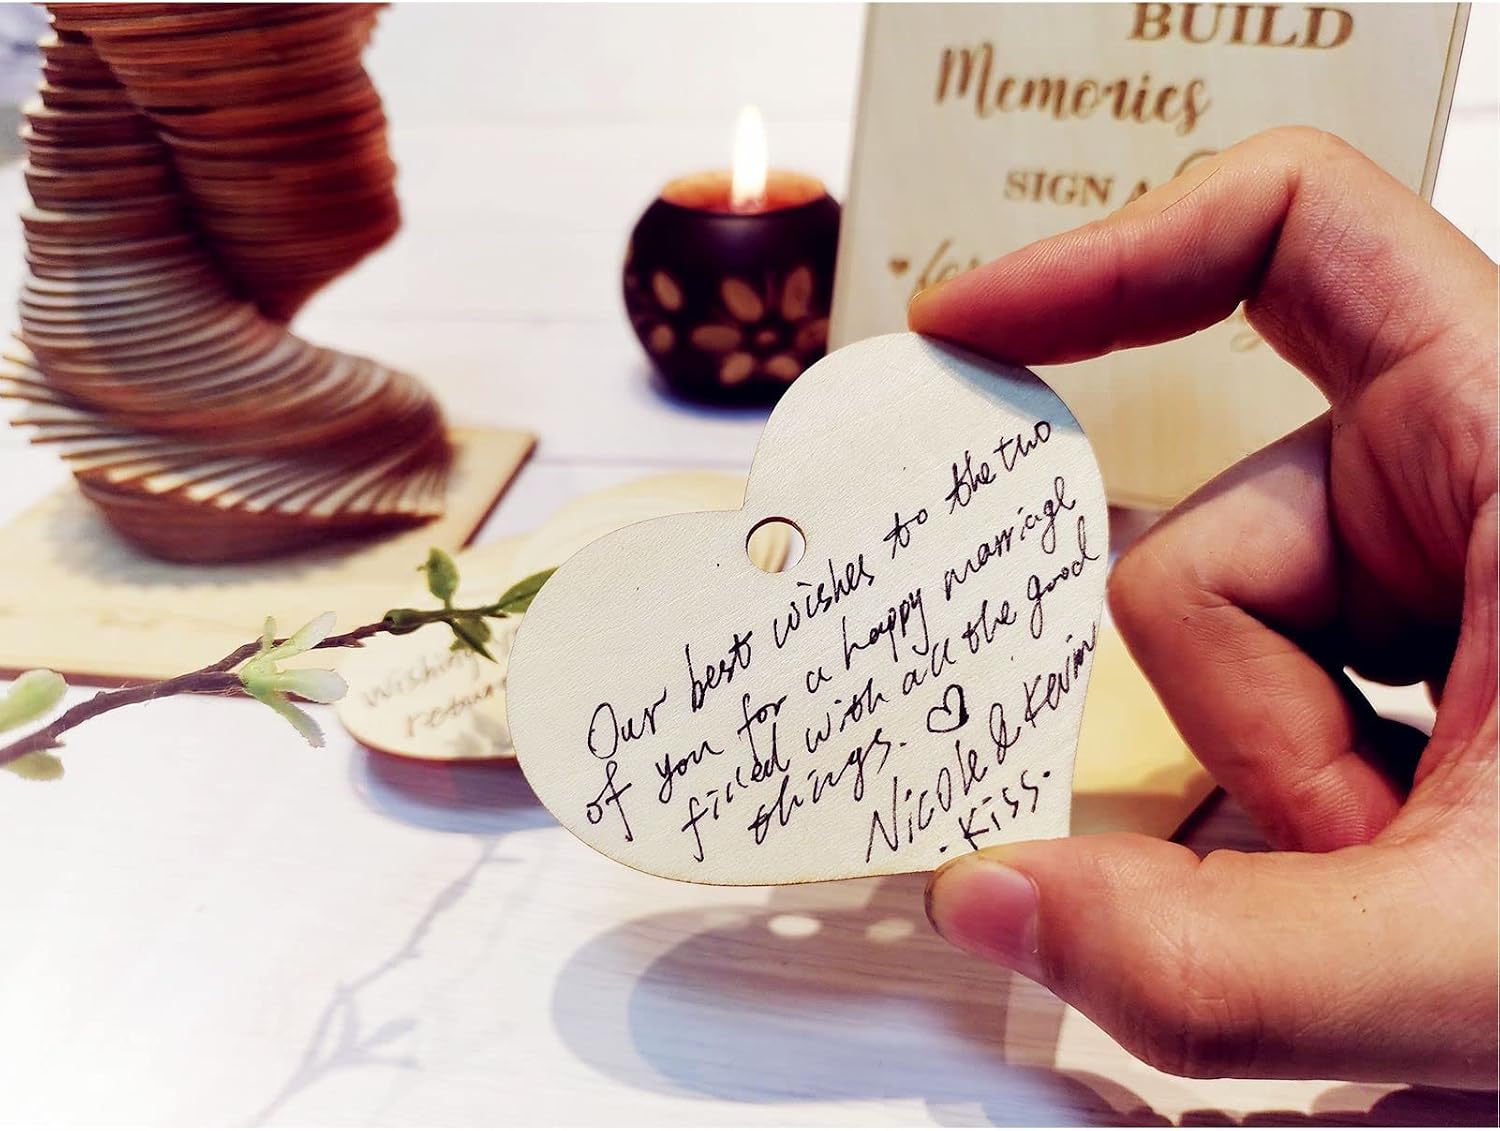 BUILD
Memories
SIGN A
Our best wishes to the two
of you for a happy marriage
filled with all the good
things. ♡
Nicole & Kevin
. Kiss.
Wishing
return